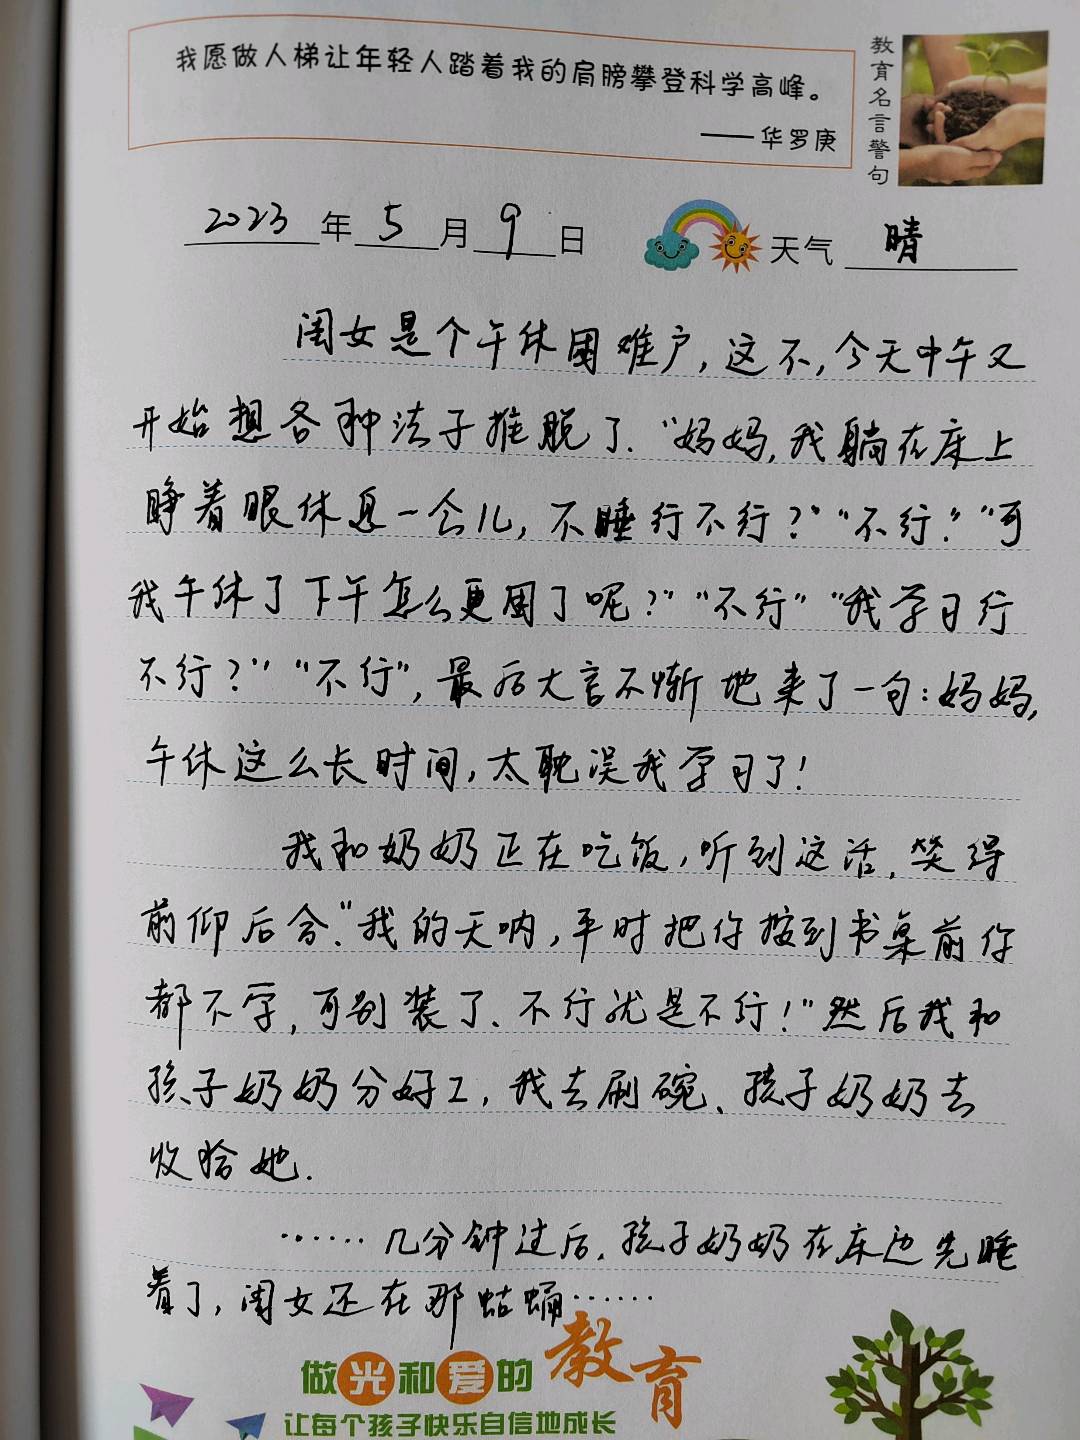 我愿做人梯让年轻人踏着我的肩膀攀登科学高峰。
——华罗庚
教育名言警句
2023年5月9日 天气 晴
闺女是个午休困难户,这不,今天中午又
开始想各种法子推脱了.“妈妈,我躺在床上
睁着眼休息一会儿,不睡行不行?”“不行!”“可
我午休了下午怎么更困了呢?”“不行”“我学习行
不行?”“不行”,最后大言不惭地来了一句:妈妈,
午休这么长时间,太耽误我学习了!
我和奶奶正在吃饭,听到这话,笑得
前仰后合.“我的天呐,平时把你按到书桌前你
都不学,可别装了、不行就是不行!”然后我和
孩子奶奶分好工,我去刷碗、孩子奶奶去
收拾她.
……几分钟过后,孩子奶奶在床边先睡
着了,闺女还在那蛄蛹……
做光和爱的教育
让每个孩子快乐自信地成长